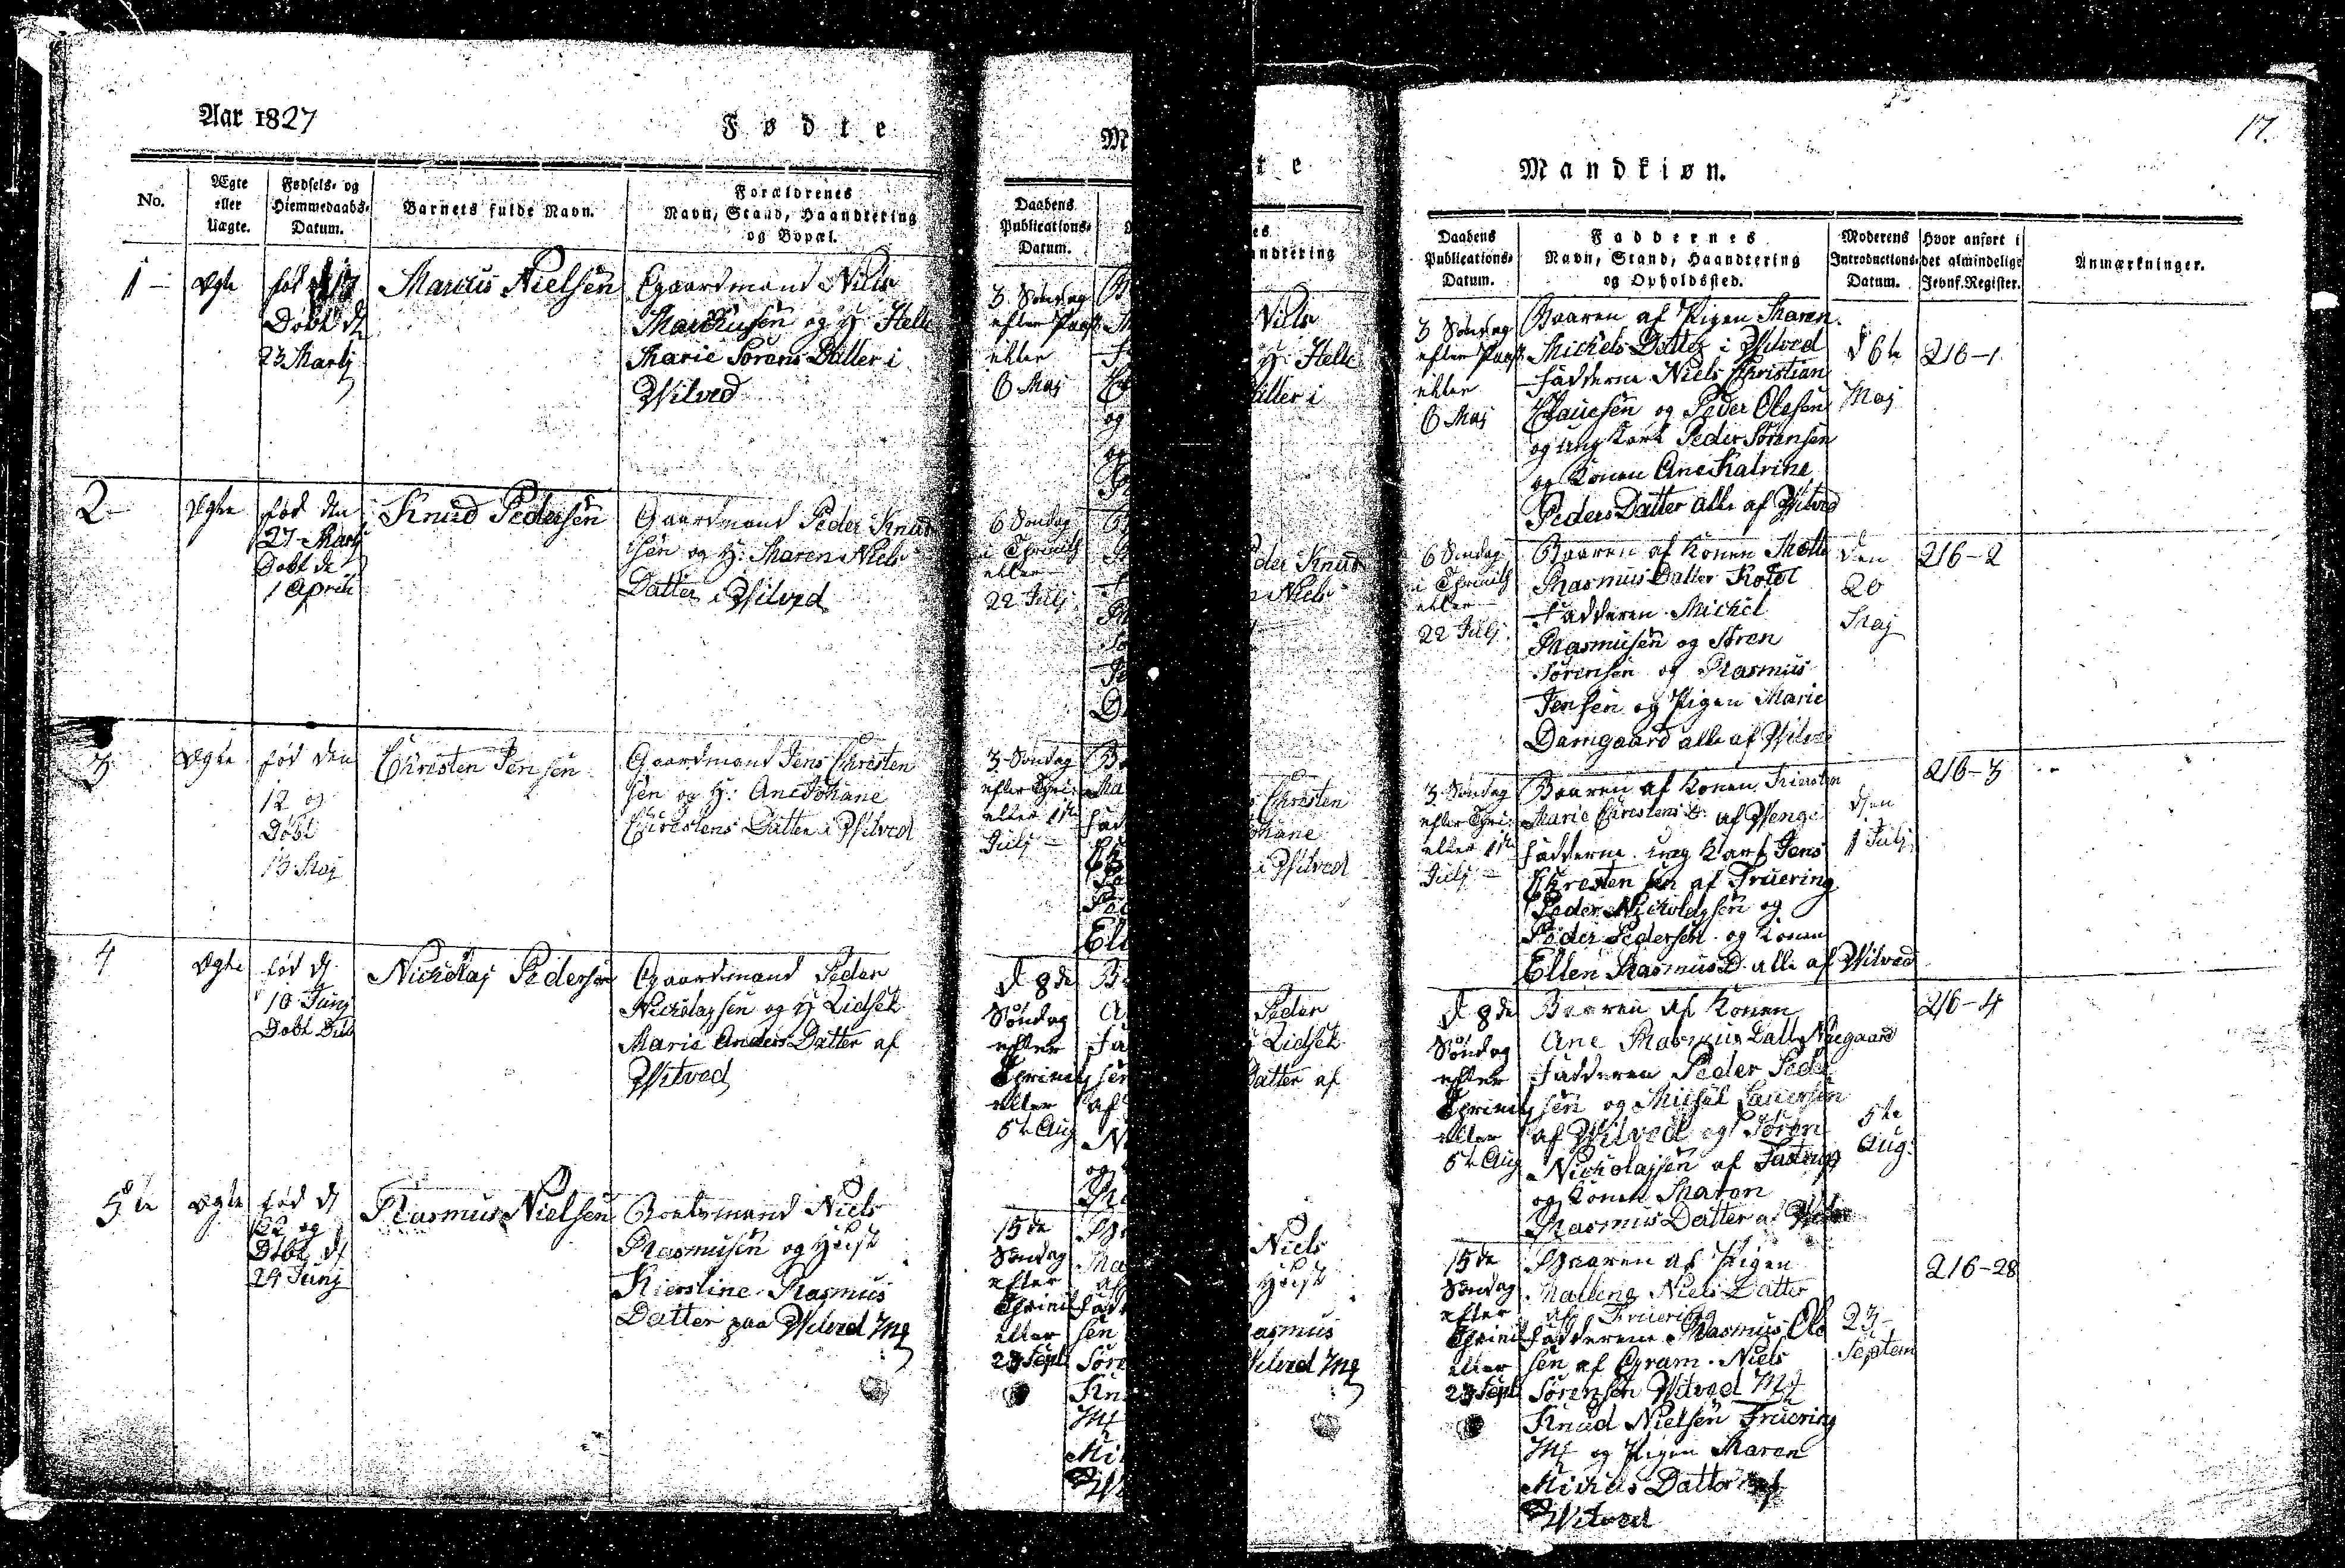 Aar 1827
Fødte
No.
Ægte
eller
Uægte.
Fødsels- og
Hiemmedaabs-
Datum.
Barnets fulde Navn.
Forældrenes
Navn, Stand, Haandtering
og Bopæl.
1 -
ægte
Døbt d
23 Martj
Marcus Nielsen
Gaardmand Niels
Marcusen og H: Helle
Marie Sørens Datter i
Wilved
2
ægte
fød den
27 Martj
Døbt d
1 April
Knud Pedersen
Gaardmand Peder Knud
sen og H: Maren Niels
Datter i Wilved
3
ægte
fød den
12 og
Døbt
13 Maj
Christen Jensen
Gaardmand Jens Christen
sen og H: Ane Johane
Christens Datter i Wilved
4
ægte
fød d
10 Junj
Døbt
Nickolaj Pedersen
Gaardmand Peder
Nickolajsen og H Lidsek
Marie Anders Datter af
Wilved
5te
ægte
fød d
22 og
Døbt d
24 Junj
Rasmus Nielsen
Boelsmand Niels
Rasmusen og Hust
Kierstine Rasmus
Datter paa Wilved M
17.
Mandkiøn.
Daabens
Publications-
Datum.
Faddernes
Navn, Stand, Haandtering
og Opholdssted.
Moderens
Introductions-
Datum.
Hvor anført i
det almindelige
Jevnf. Register.
Anmærkninger.
3 Søndag
efter Paask
eller
6 Maj
Baaren af Pigen Maren
Mickels Datter i Wilved
Fadderne Niels Christian
Clausen og Peder Olesen
og ung Karl Peder Sørensen
og Konen Ane Katrine
Peders Datter alle af Wilved
d 6te
Maj
216-1
6 Søndag
eller
22 Julj
Baaren af Konen
Rasmus Datter
Fadderen Mickel
Rasmusen og Søren
Sørensen og Rasmus
Jensen og Pigen Marie
Damgaard alle af Wilved
den
20
Maj
216-2
3 Søndag
efter Tri
eller 1te
Julj
Baaren af Konen Kiersten
Marie Christens D. af Wenge
Fadderne ung Karl Jens
Christensen af Fruering
Peder Nickolajsen og
Peder Pedersen og Konen
Ellen Rasmus D. alle af Wilved
den
1 Julj
216-3
d 8de
Søndag
efter
Trinity
eller
5te Aug
Baaren af Konen
Ane Rasmus Datt Nuegaard
Fadderen Peder Peder
sen og Mickel Laursen
af Wilved og Søren
Nickolajsen af
og Konen Maren
Rasmus Datter af
5te
Aug.
216-4
15de
Søndag
efter
Trinit
eller
23 Sept
Baaren af Pigen
Mallene Niels Datter
af Fruering
Fadderene Rasmus Ole
sen af Gram. Niels
Sørensen Wilved M
Knud Nielsen Fruering
M og Pigen Maren
Mickels Datter af
Wilved
23
Septem
216-28